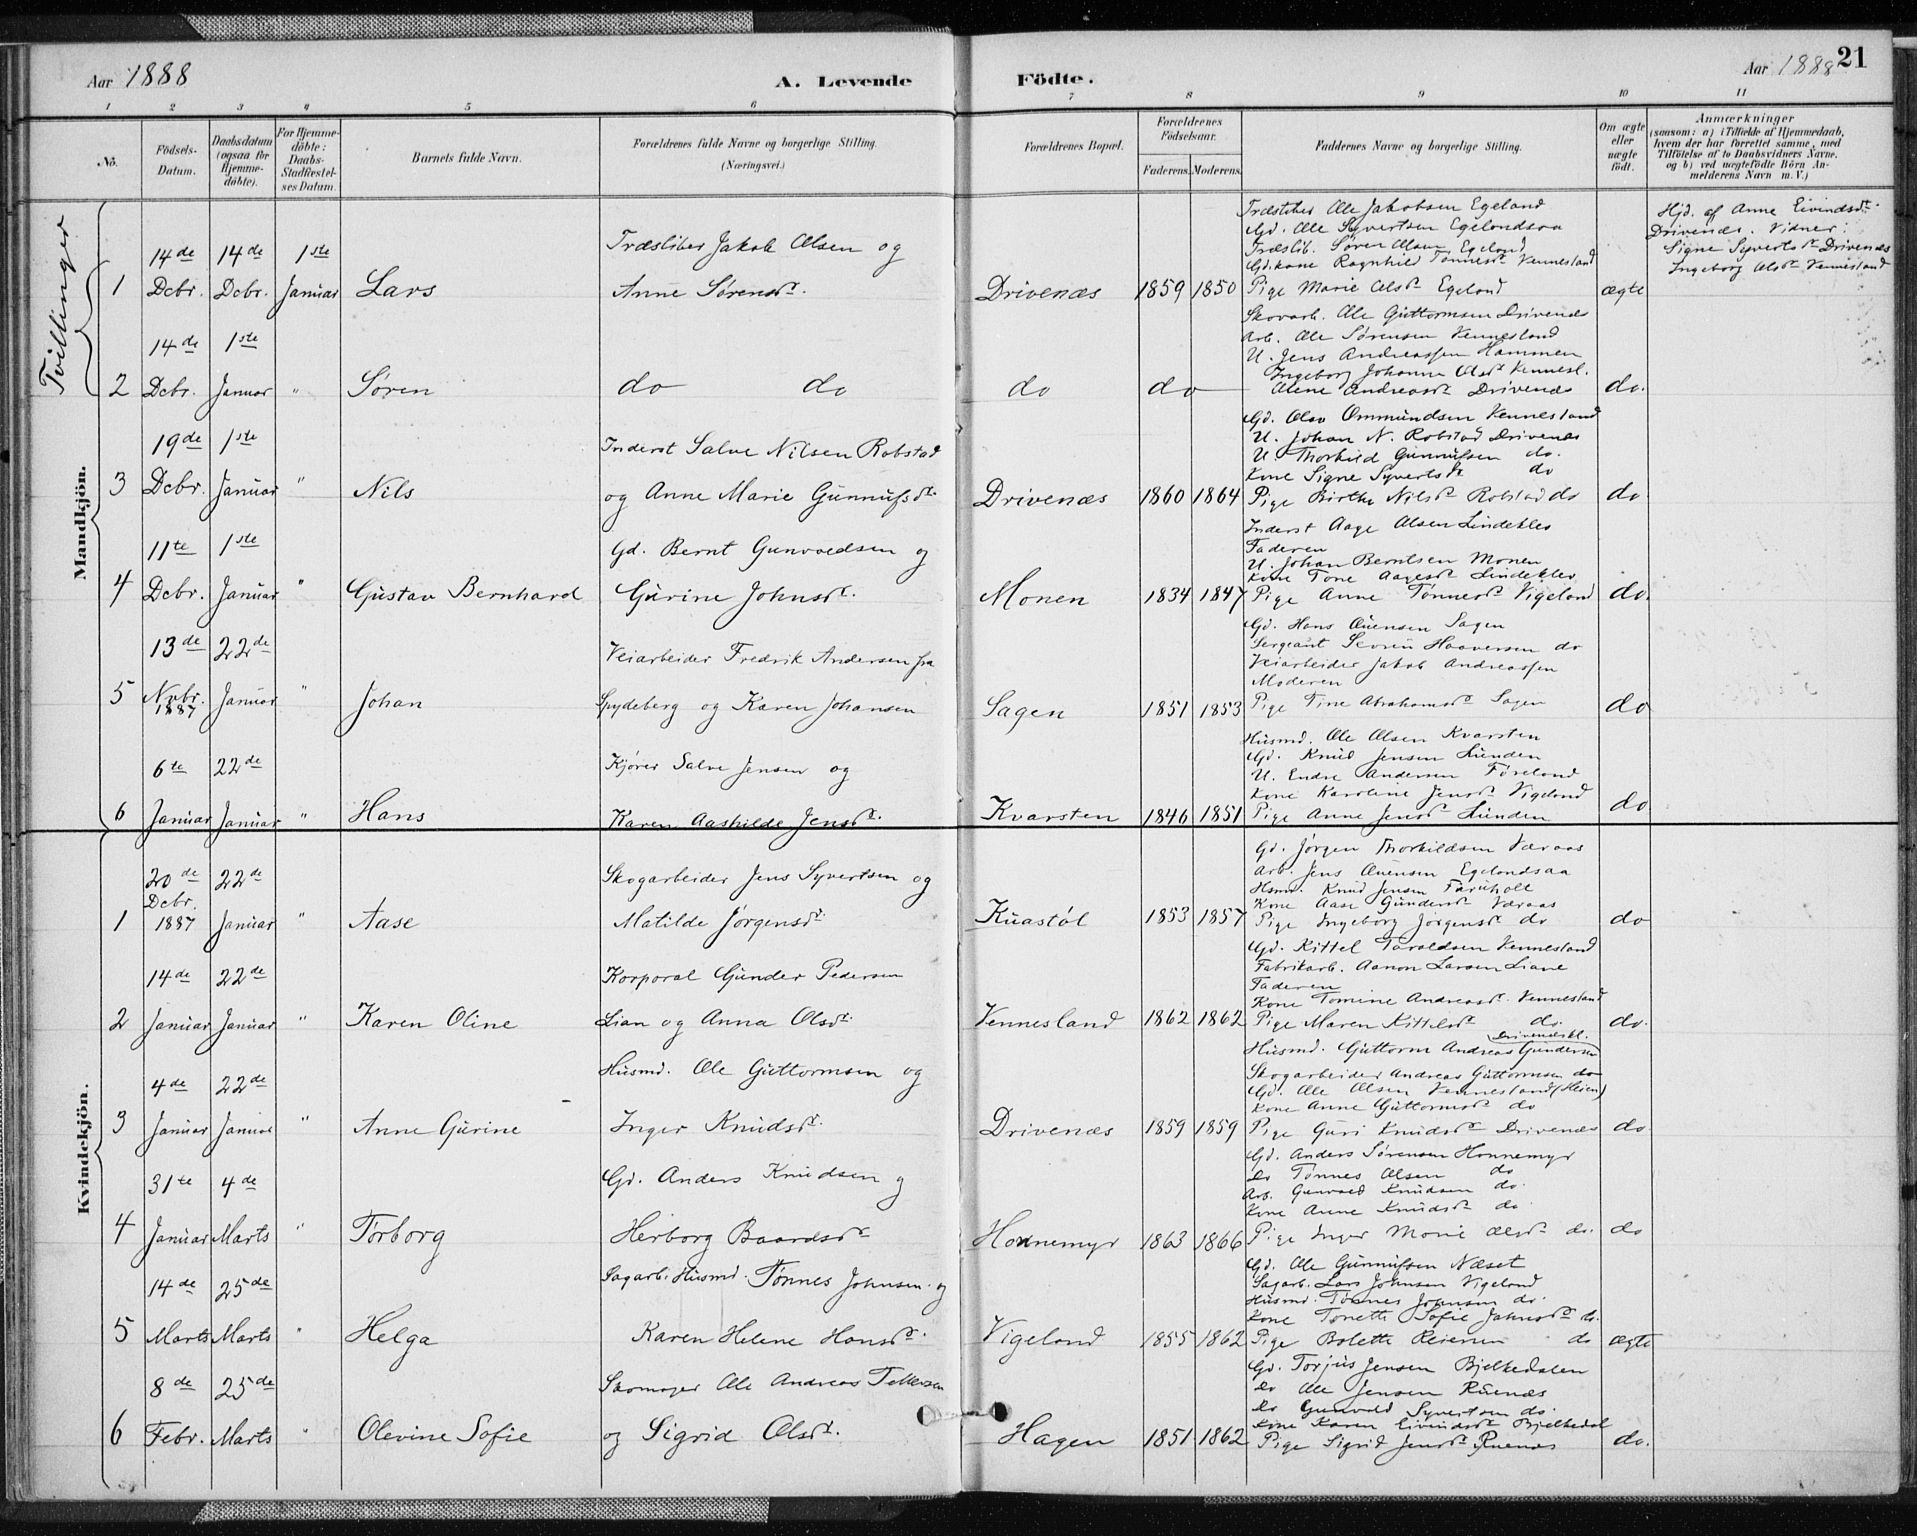 Aar 1888
A. Levende
Födte.
Aar 1888
21
1 2 3 4 5 6 7 8 9 10 11
No.
Födsels-Datum.
Daabsdatum (ogsaa for Hjemme-döbte).
For Hjemme-döbte: Daabs-Stadfæstel-ses Datum.
Barnets fulde Navn.
Forældrenes fulde Navne og borgerlige Stilling.
(Næringsvei.)
Forældrenes Bopæl.
Forældrenes Födselsaar.
Faderens. Moderens.
Faddernes Navne og borgerlige Stilling.
Om ægte eller uægte födt.
Anmærkninger
(saasom: a) i Tilfælde af Hjemmedaab, hvem der har forrettet samme, med Tilföielse af to Daabsvidners Navne, og b) ved uægtefödte Börn An-melderens Navn m. V.)
Tvillinger
Mandkjön.
1 14de Dcbr. 14de Dcbr. 1ste Januar Lars
Træsliber Jakob Olsen og
Anne Sørensdt.
Drivenæs 1859 1850
Træsliber Ole Jakobsen Egeland
Gd. Ole Syvertsen Egelandsaa
Træslib. Søren Olsen Egeland
Gd.kone Ragnhild Tønnesdt Vennesland
Pige Marie Olsdt Egeland
ægte
Hjd. af Anne Eivindsdt.
Drivenæs. Vidner:
Signe Syvertsdt Drivenæs
Ingeborg Olsdt Vennesland
2 14de Dcbr. 1ste Januar " Søren
do do
do do
Skovarb. Ole Guttormsen Drivenæs
Arb. Ole Sørensen Vennesland
U. Jens Andreassen Hammen
Ingeborg Johanne Olsdt Vennesl.
Alene Andreasdt Drivenæs
do.
3 19de Dcbr. 1ste Januar " Nils
Inderst Salve Nilsen Robstad
og Anne Marie Gunnufsdt.
Drivenæs 1860 1864
Gd. Olav Ommundsen Vennesland
U. Johan N. Robstad Drivenæs
U. Thorkild Gunnufsen do.
Kone Signe Syvertsdt do
Pige Birthe Nilsdt Robstad do
do
4 11te Dcbr. 1ste Januar " Gustav Bernhard
Gd. Bernt Gunvoldsen og
Gurine Johnsdt.
Monen 1834 1847
Inderst Aage Olsen Lindeklev
Faderen
U. Johan Berntsen Monen
Kone Tone Aagesdt Lindeklev
Pige Anne Tønnesdt Vigeland
do.
5 13de Nvbr. 1887 22de Januar " Johan
Veiarbeider Fredrik Andersen fra
Spydeberg og Karen Johansen
Sagen 1851 1853
Gd. Hans Ouensen Sagen
Sergeant Severin Haaversen do
Veiarbeider Jakob Andreassen
Moderen
Pige Tine Abrahamsdt Sagen
do
6 6te Januar 22de Januar " Hans
Kjører Salve Jensen og
Karen Aashilde Jensdt.
Kvarsten 1846 1851
Husmd. Ole Olsen Kvarsten
Gd. Knud Jensen Lunden
U. Endre Andersen Føreland
Kone Karoline Jensdt Vigeland
Pige Anne Jensdt Lunden
do
Kvindekjön.
1 20de Dcbr. 1887 22de Januar " Aase
Skogarbeider Jens Syvertsen og
Matilde Jørgensdt.
Kuastøl 1853 1857
Gd. Jørgen Thorkildsen Væraas
Arb. Jens Ouensen Egelandsaa
Hsmd. Knud Jensen
Kone Aase Gundersdt Væraas
Pige Ingeborg Jørgensdt do
do
2 14de Januar 22de Januar " Karen Oline
Korporal Gunder Pedersen
Lian og Anna Olsdt.
Vennesland 1862 1862
Gd. Kittel Taraldsen Vennesland
Fabrikarb. Aanon Larsen Liane
Faderen
Kone Tomine Andreasdt. Vennesland
Pige Maren Kittelsdt do.
do.
3 4de Januar 22de Januar " Anne Gurine
Husmd. Ole Guttormsen og
Inger Knudsdt.
Drivenæs 1859 1859
Drivenæskl.
Husmd. Guttorm Andreas Gundersen
Skogarbeider Andreas Guttormsen do
Gd. Ole Olsen Vennesland (Heien)
Kone Anne Guttormsdt do
Pige Guri Knudsdt Drivenæs
do.
4 31te Januar 4de Marts " Torborg
Gd. Anders Knudsen og
Herborg Baardsdt
Honnemyr 1863 1866
Gd. Anders Sørensen Honnemyr
Do Tønnes Olsen do
Arb. Gunvald Knudsen do.
Kone Anne Knudsdt do.
Pige Inger Marie Olsdt do.
do
5 14de Marts 25de Marts " Helga
Sagarb. Husmd. Tønnes Johnsen og
Karen Helene Hansdt.
Vigeland 1855 1862
Gd. Ole Gunnufsen Næset
Sagarb. Lars Johnsen Vigeland
Husmd. Tønnes Johnsen do.
Kone Tonette Sofie Jahnsdt do.
Pige Bolette Reiersen do
ægte
6 8de Febr. 25de Marts " Olevine Sofie
Skomager Ole Andreas Tellefsen
og Sigrid Olsdt.
Hagen 1851 1862
Gd. Torjus Jensen Bjelkedalen
Do Ole Jensen Ruenæs
Do Gunvald Syvertsen do.
Kone Karen Eivindsdt Bjelkedal
Pige Sigrid Jensdt Ruenæs
do.